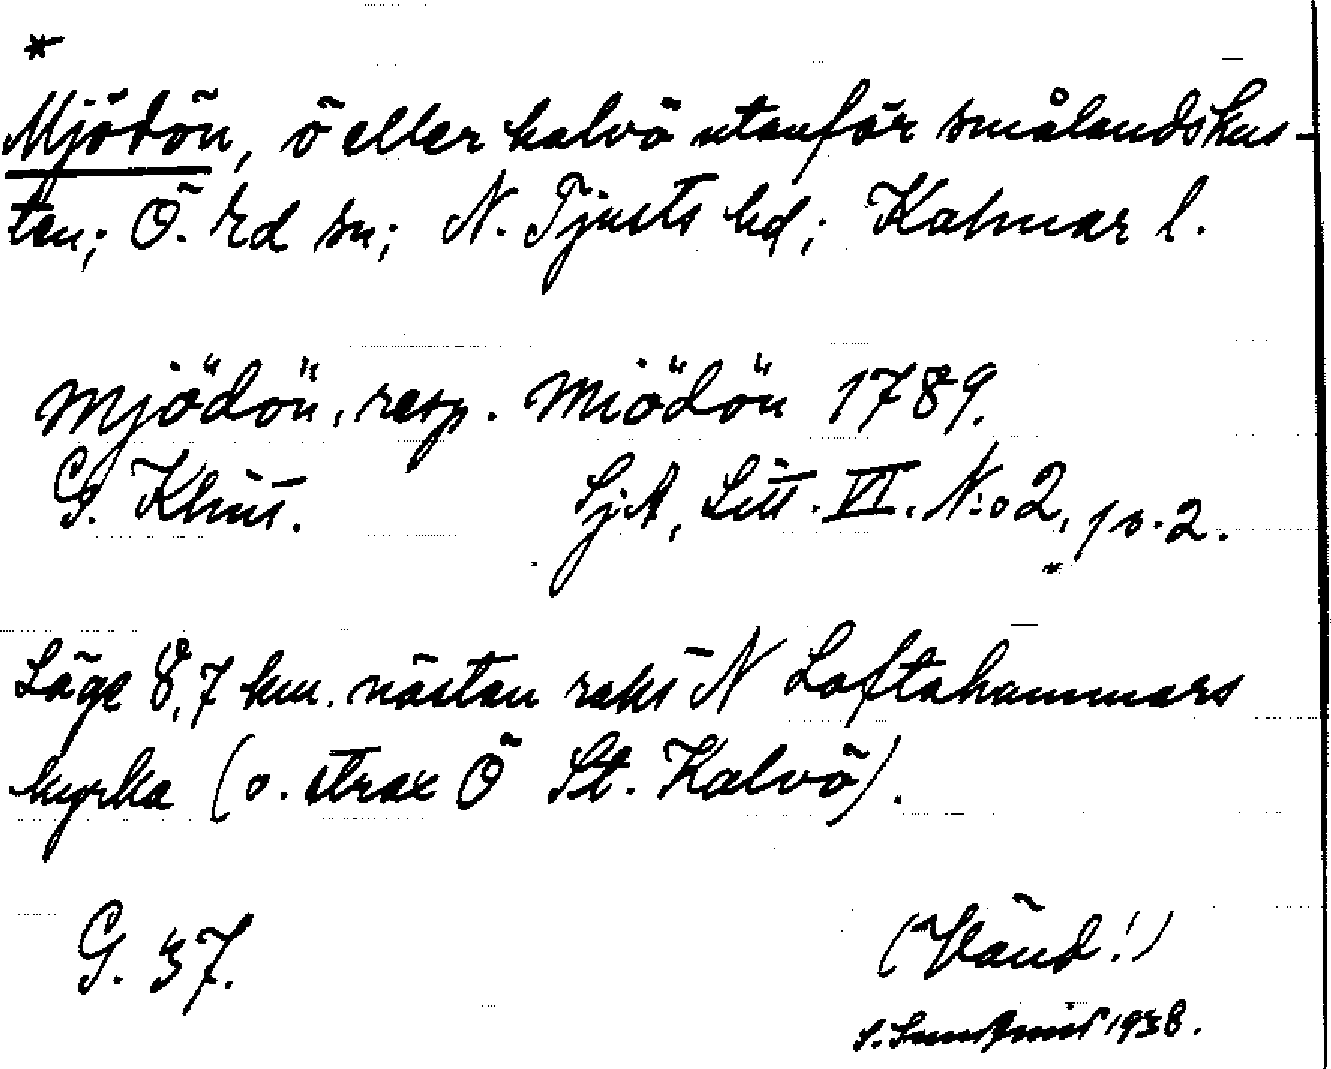 *
Mjödön, ö eller halvö utanför smålandskus-
ten; Ö. Ed sn; N. Tjusts hd; Kalmar l.
Mjödön, resp. Miödön 1789.
G. Klint. SjA, Litt. VI. N:o 2, p. 2.
Läge 8,7 km. nästan rakt N Loftahammars
kyrka (o. strax Ö St. Kalvö).
G. 37.
(Vänd!)
S. 1938.